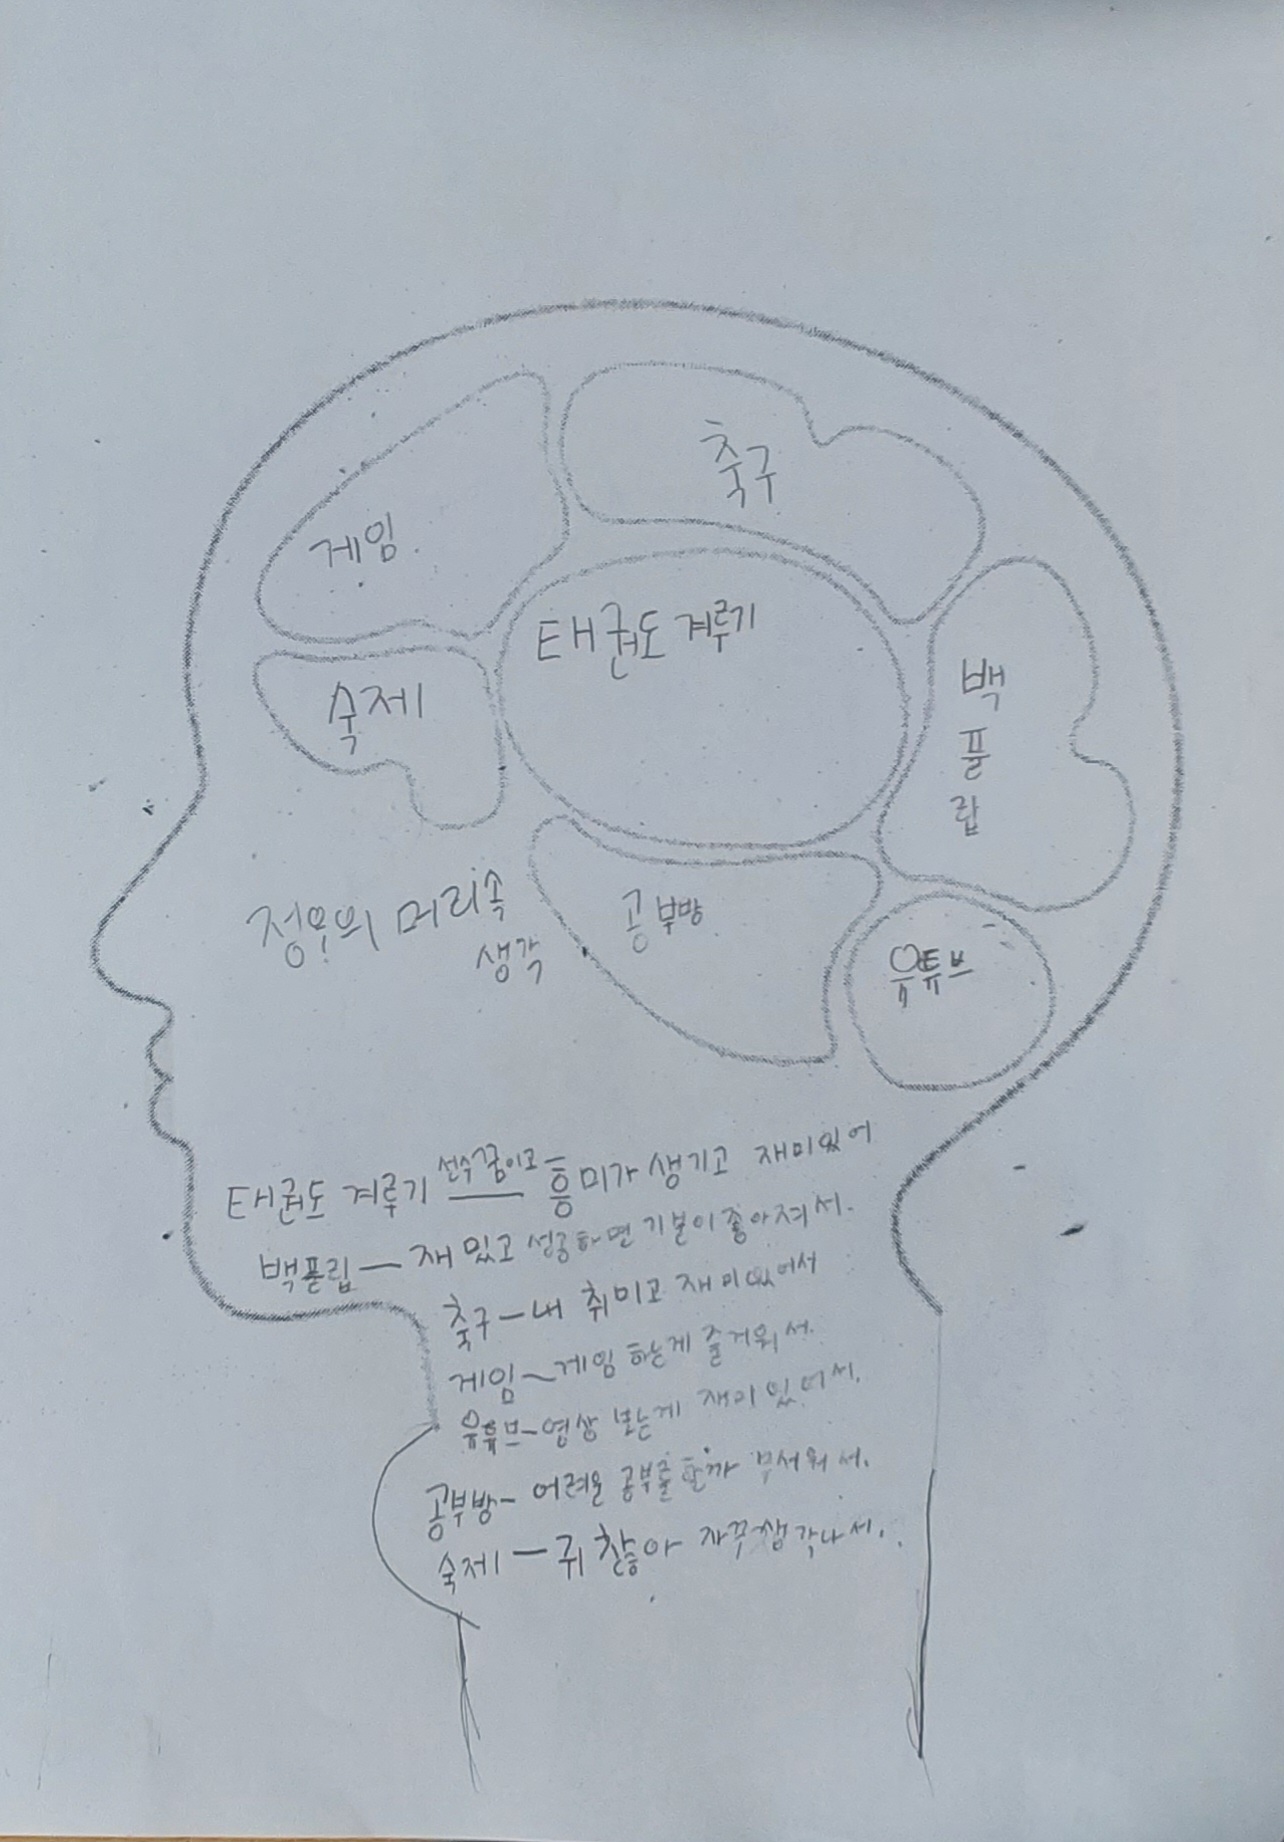 축구
게임.
태권도 겨루기
백
플
립
숙제
공부방
유튜브
정우의 머리속
생각
선수꿈이고
태권도 겨루기 — 흥미가 생기고 재미있어
백플립 — 재밌고 성공하면 기분이 좋아져서.
축구 – 내 취미고 재미있어서
게임 ~ 게임 하는게 즐거워서.
유튜브 – 영상 보는게 재미있어서.
공부방 – 어려운 공부를 할까 무서워서.
숙제 – 귀찮아 자꾸생각나서.